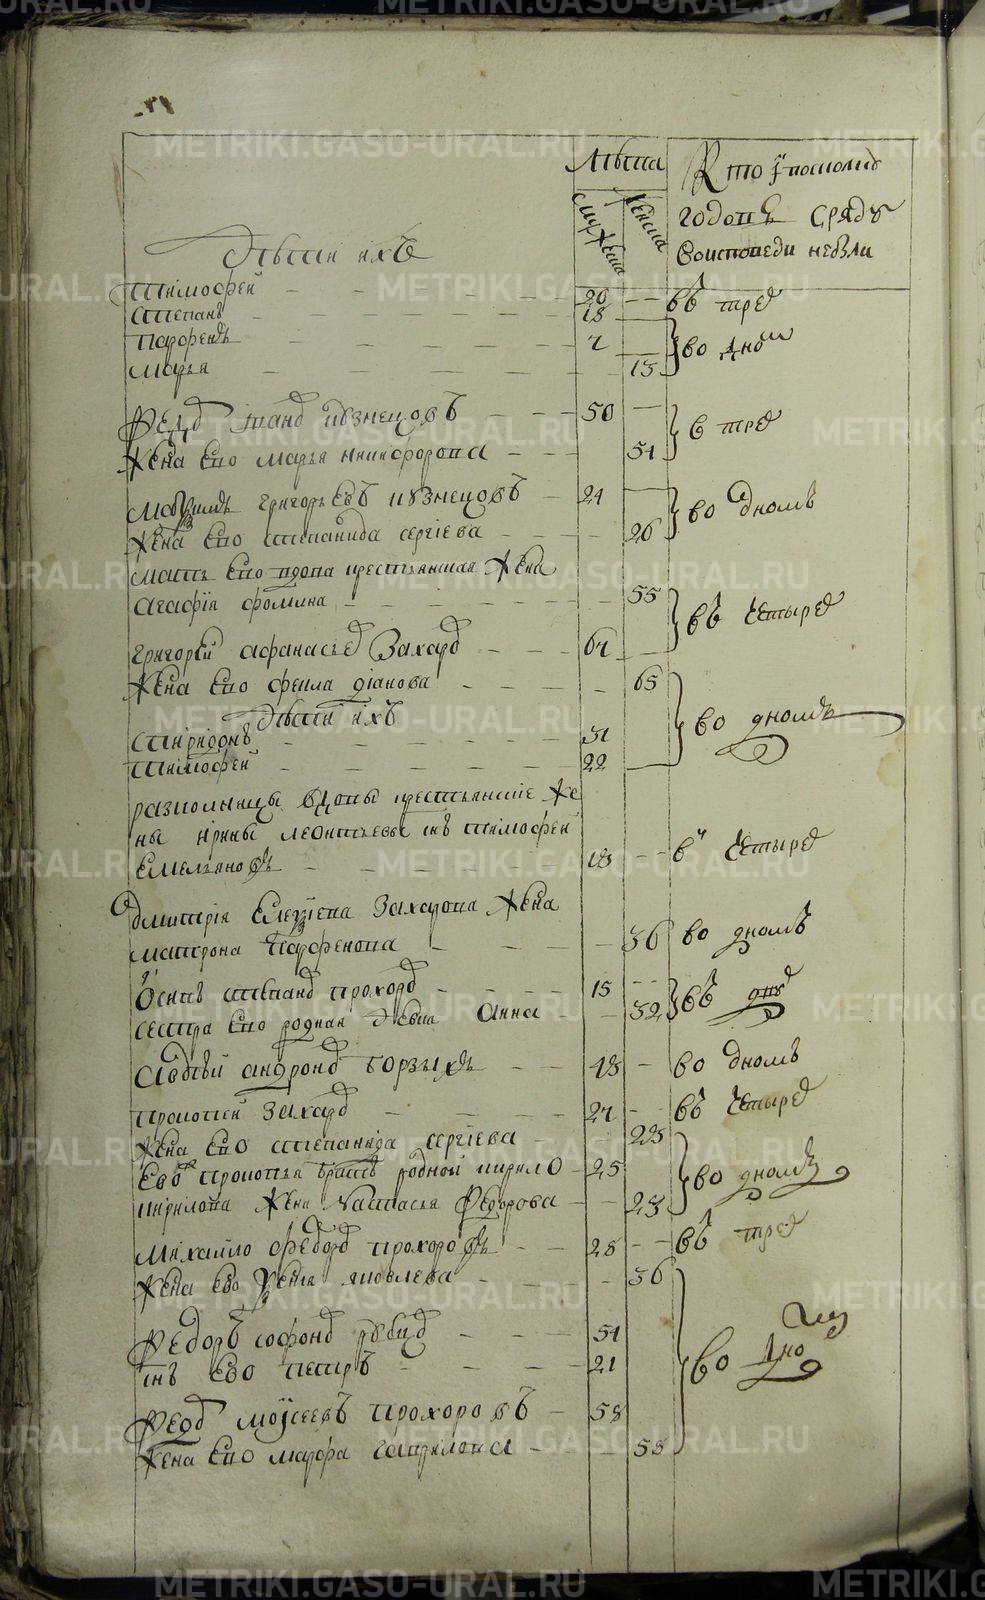 METRIKI.GASO-URAL.RU
Лѣта
мужеска
женска
Кто Ѹ сколко
годовъ сряду
Ѹ исповеди небыли
Дѣти ихъ
Тимофей 20 въ трех
Степанъ 18
Парфенъ 7 во дном
Марья 13
Федор Иванов Кузнецовъ 50 в трех
Жена Ево Марья Никифорова 51
Григорьевъ Кузнецовъ 24 во дномъ
Жена Ево Степанида Сергѣева 26
Мать Ево вдова крестьянская Жена
Агафія Фомина 55 въ четырех
Григорей Афанасьев Захаров 67
Жена Ево Фекла 65
Дѣти ихъ во дномъ
Спиридонъ 31
Тимофей 22
вдовы крестьянские Же
ны Ирины Леонтьевы снъ Тимофей
Емельяновъ 18 в четырех
Дмитрія Захарова Жена
Матрона Парфенова 36 во дномъ
Осипъ Степанов Прохоров 15
сестра Ево родная дѣвка Анна 32 въ
Авдѣй Андронов Борзыхъ 48 во дномъ
Прокопей Захаров 27 въ четырех
Жена Ево Степанида Сергѣева 23
Ево Прокопья братъ родной Кирило 25 во дномъ
Кирилова Жена Настасья Федорова 23
Михайло Федоров Прохоровъ 28 въ трех
Жена Ево Яковлева 36
Федоръ Софонов 51
снъ Ево Петръ 21 во дно
Федор Моѵсеевъ Прохоровъ 58
Жена Ево Марфа Гаврилова 58